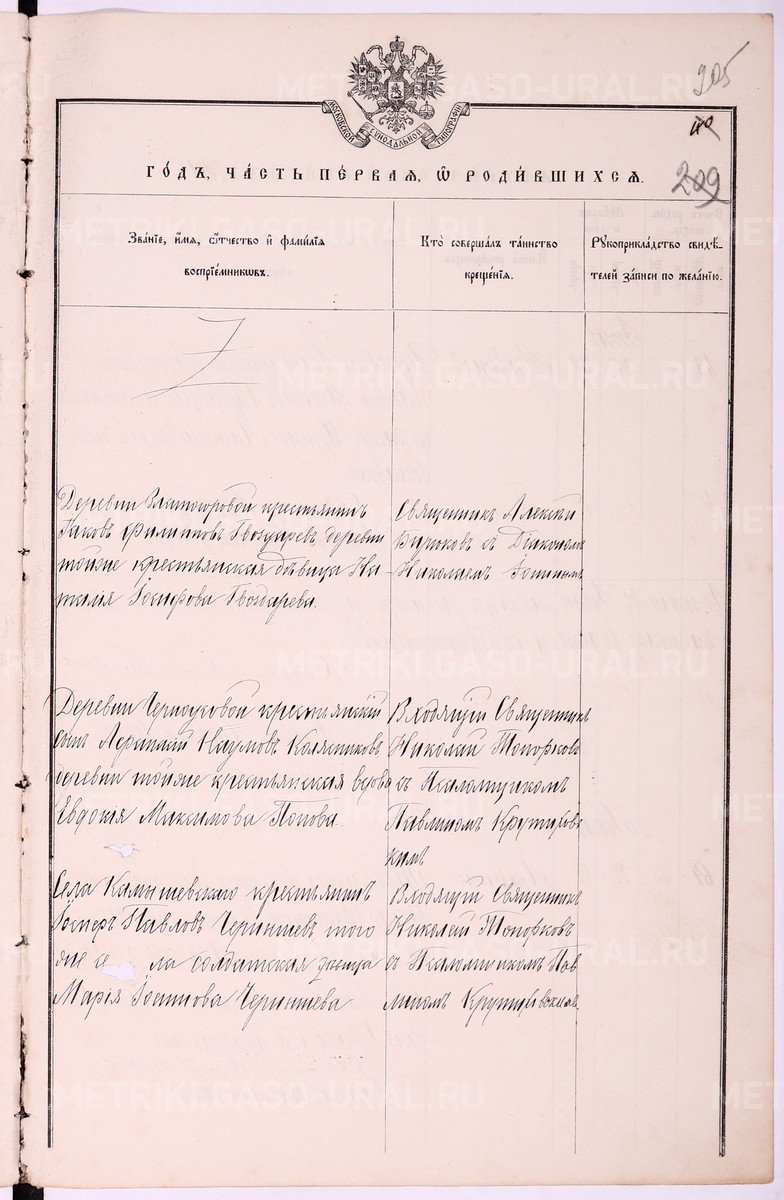 905
110
209
МОСКОВСКОЙ СѴНОДАЛЬНОЙ ТИПОГРАФІИ
ГО́ДЪ, ЧА́СТЬ ПЕ́РВАЯ, Ѡ҆ РОДИ́ВШИХСЯ.
Зва́нїе, и҆́мя, ѻ҆́тчество и҆ фами́лїя
воспрїе́мникωвъ.
Кто̀ соверша́лъ та́инство
креще́нїя.
Рꙋкоприкла́дство свидѣ́-
телей за́писи по жела́нїю.
Z
Деревни крестьянинъ
Яковъ Филиповъ Гвоздаревъ, деревни
тойже крестьянская дѣвица На-
талія Іосифова Гвоздарева.
Священникъ Алексѣй
Бирюковъ съ Діакономъ
Николаемъ
Деревни Черноусовой крестьянскій
сынъ Наумовъ Колясниковъ
деревни тойже крестьянская вдова
Евдокія Максимова Попова.
Входящій Священникъ
Николай Топорковъ
съ Псаломщикомъ
Павлиномъ Крутиков-
кимъ
Села Камышевскаго крестьянинъ
Павловъ Чернышевъ, того
же се ла солдатская
Марія Чернышева
Входящій Священникъ
Николай Топорковъ
съ Псаломщикомъ Пав-
линомъ
METRIKI.GASO-URAL.RU